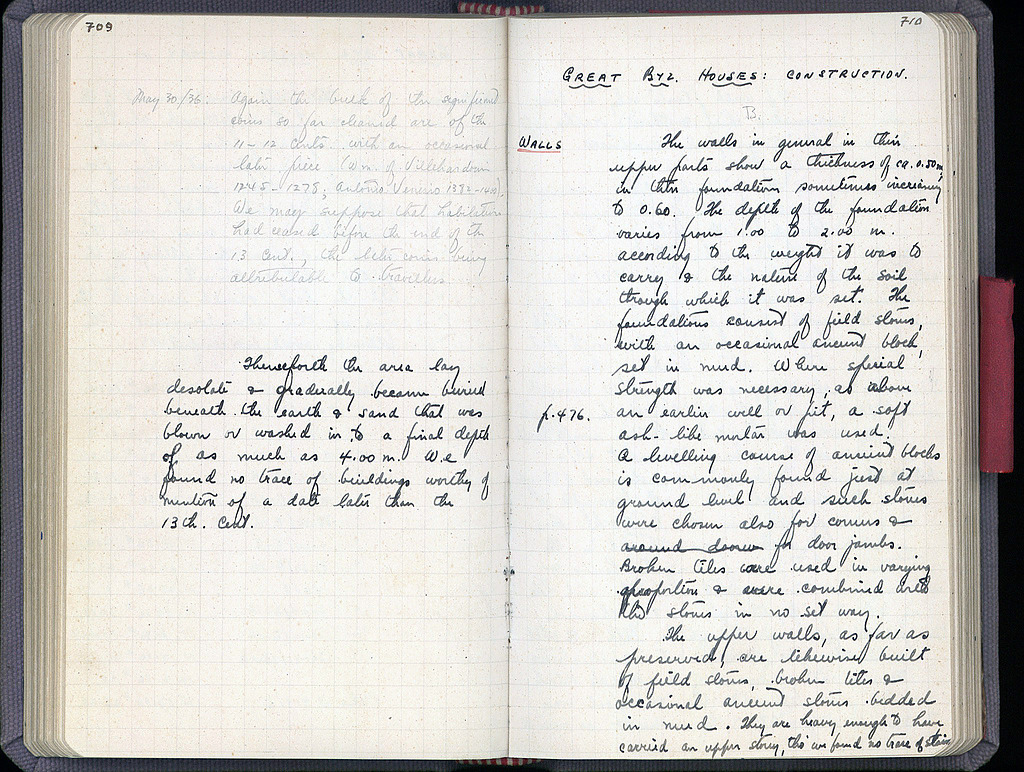 709
May 30/36. Again the bulk of the significant
coins so far cleaned are of the
11-12 cents. with an occasional
later piece (Wm. of Villehardouin
1245-1278; Antonio Venerio 1382-1400).
We may suppose that habitation
had ceased before the end of the
13 cent., the later coins being
attributable to travellers.
Thenceforth the area lay
desolate & gradually became buried
beneath the earth & sand that was
blown or washed in to a final depth
of as much as 4.00 m. We
found no trace of buildings worthy of
mention of a date later than the
13th. Cent.
710
GREAT BYZ. HOUSES: CONSTRUCTION.
B.
WALLS
The walls in general in their
upper parts show a thickness of ca. 0.50 m,
in their foundation sometimes increasing
to 0.60. The depth of the foundation
varies from 1.00 to 2.00 m.
according to the weight it was to
carry & the nature of the soil
through which it was set. The
foundations consist of field stones,
with an occasional ancient block,
set in mud. Where special
strength was necessary, as above
p. 476. an earlier well or pit, a soft
ash-like mortar was used.
A levelling course of ancient blocks
is commonly found just at
ground level and such stones
were chosen also for corners &
around doors for door jambs.
Broken tiles were used in varying
proportion & were combined with
the stones in no set way.
The upper walls, as far as
preserved, are likewise built
of field stones, broken tiles &
occasional ancient stones bedded
in mud. They are heavy enough to have
carried an upper storey, tho' we found no trace of stairs